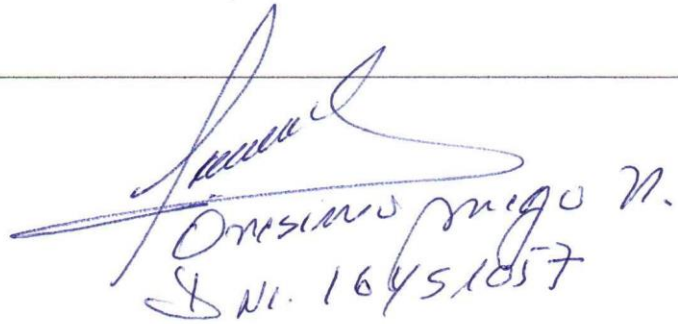 Onesimo Mego N.
DNI. 16451057